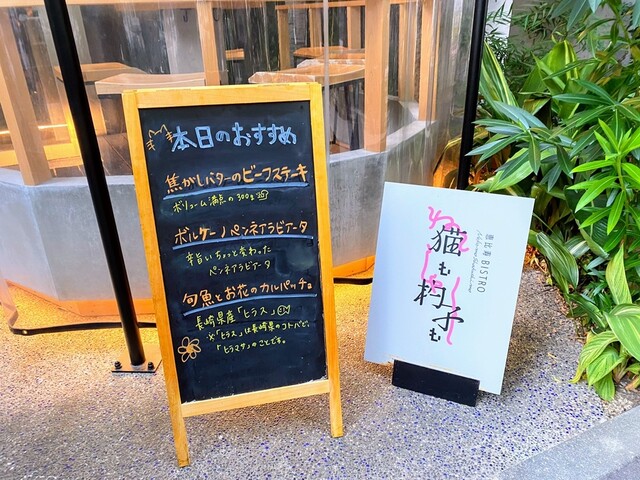 本日のおすすめ
焦がしバターのビーフステーキ
ボリューム満点の300g
ボルケーノペンネアラビアータ
辛いちょっと変わった
ペンネアラビアータ
旬魚とお花のカルパッチョ
長崎県産「ヒラス」
※「ヒラス」は長崎県のコトバで、
「ヒラマサ」のことです。
恵比寿 BISTRO
猫も
杓子も